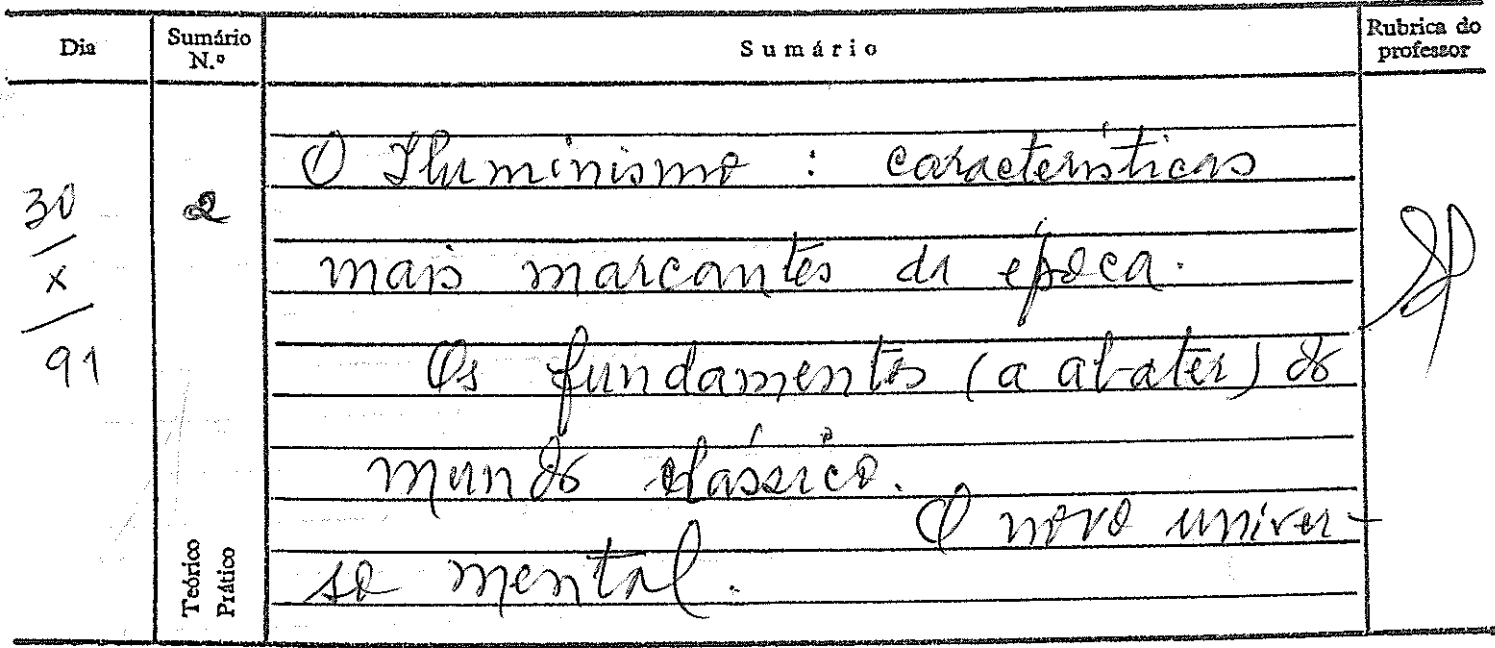 Dia
Sumário
N.º
Sumário
Rubrica do
professor
30
X
91
2
O Iluminismo : características
mais marcantes da época.
Os fundamentos (a abater) do
mundo clássico.
O novo univer-
so mental.
Teórico
Prático